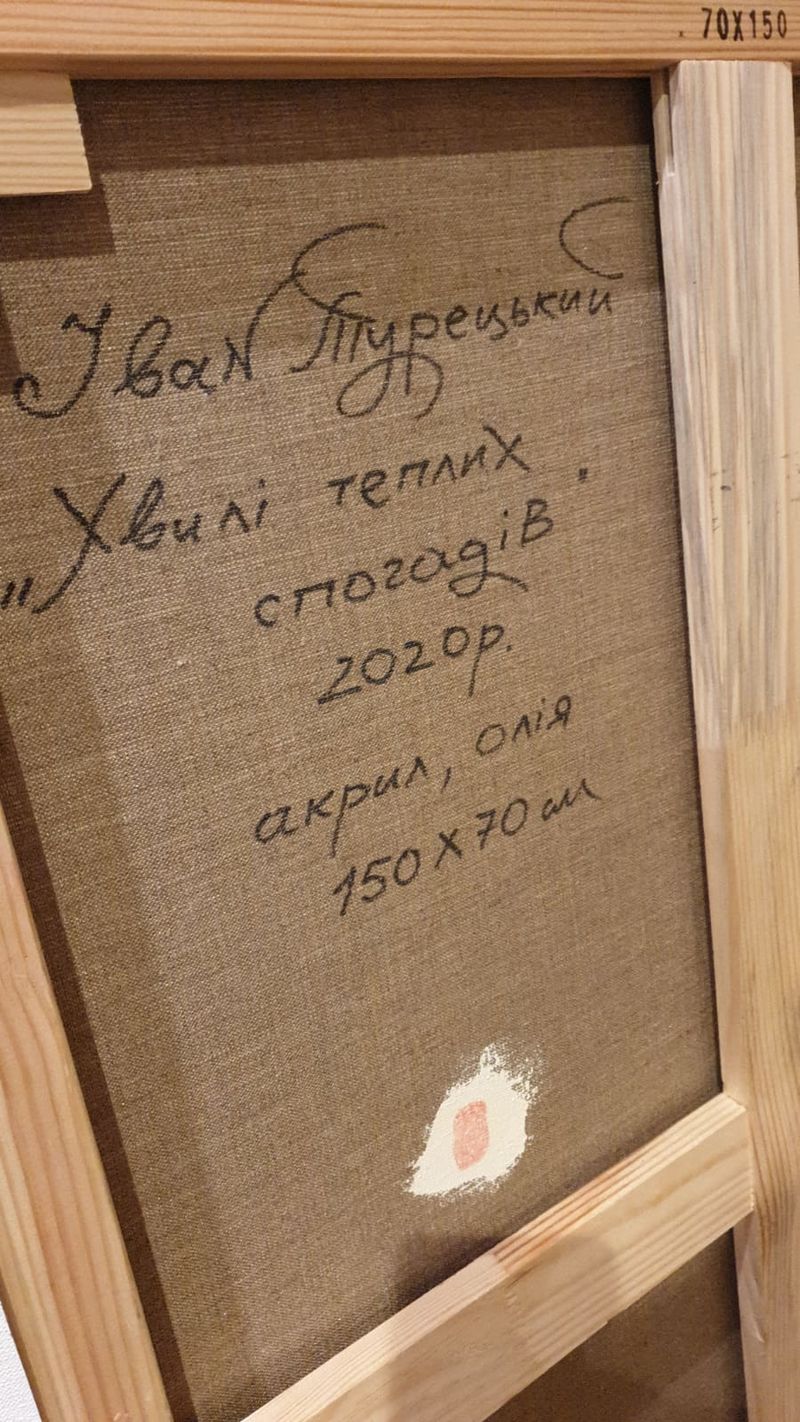 70X150
Іван Турецький
„Хвилі теплих
спогадів"
2020р.
акрил, олія
150 х 70 см